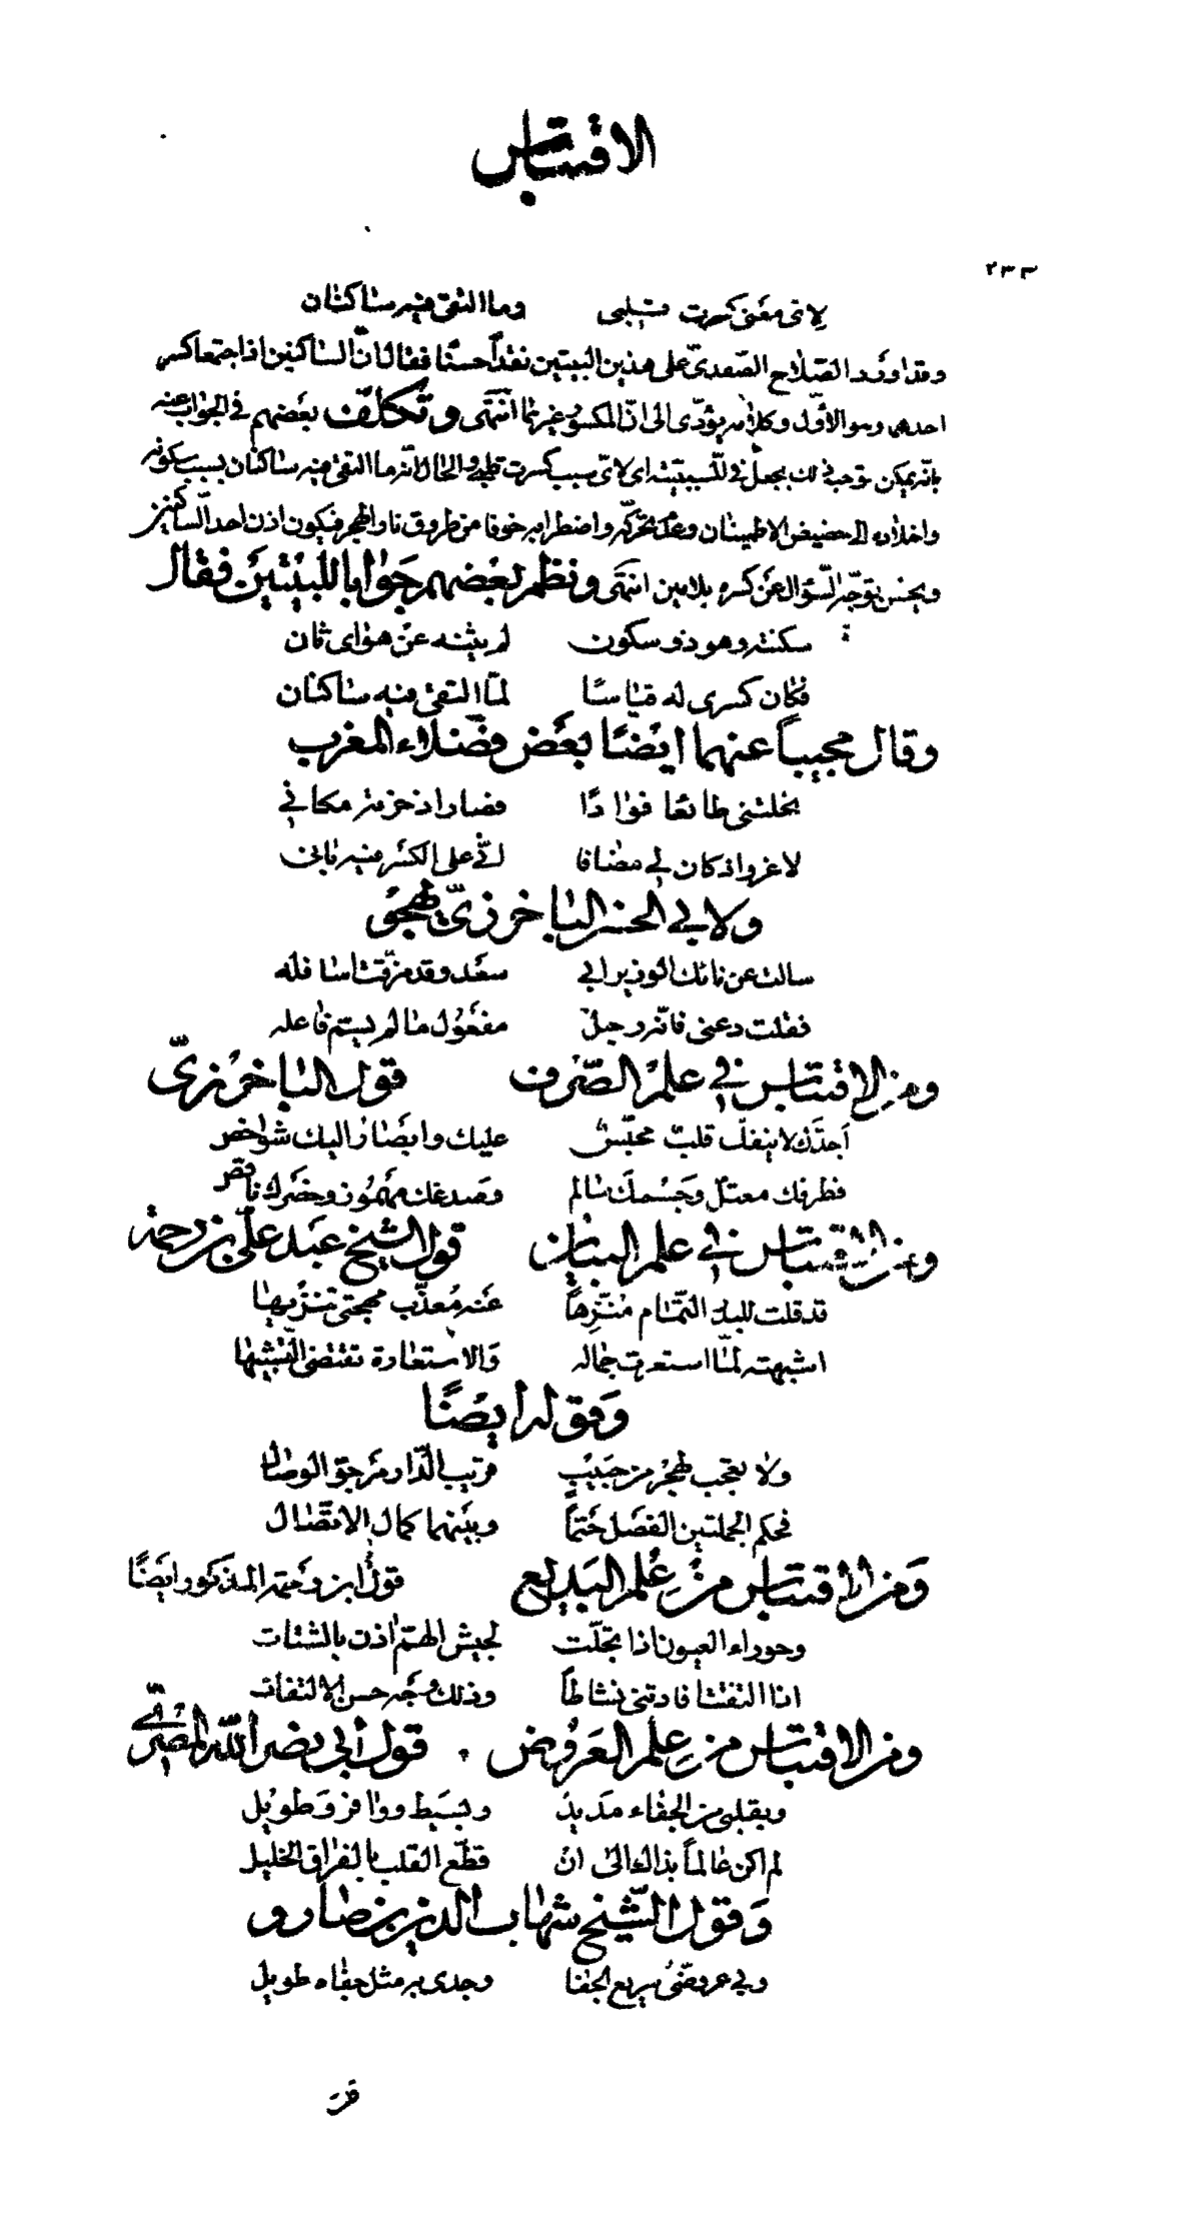 الاقتباس
٢٣٣
لاى معنى كسرت قلبى وما التقى فيه ساكنان
وقد اورد الصلاح الصفدىّ على هذين البيتين نقداً حسنًا فقال انّ الساكنين اذا اجتمعا كسر
احدهما وهو الأوّل وكلامه يؤدّى الى انّ المكسور غيرهما انتهى وتكلّف بعضهم فى الجواب عنه
بانّه يمكن توجيه ذلك بجعل فى للسببيّة اى لاىّ سبب كسرت قلبى والحال انّه ما التقى فيه ساكنان بسبب سكونه
واخلاده الى حضيض الاطمينان وعدم تحرّكه واضطرابه خوفا من طروق نار الهجر فيكون اذن احد السّاكنين
ويحسن توجّه السّؤال عن كسره بلا مين انتهى ونظم بعضهم جوابا للبيتين فقال
سكنته وهو ذو سكون لم يثنه عن هواى ثان
فكان كسرى له قياسًا لمّا التقى فيه ساكنان
وقال مجيباً عنهما ايضًا بعض فضلاء المغرب
نحلتنى طائعا فؤادًا فصار اذ حزته مكانى
لا غرو اذ كان لى مضافا انّى على الكسر فيه بانى
ولابى الحسن الباخرزىّ يهجو
سالت عن نائك الوزير ابى سعد وقد مزّقت اسافله
فقلت دعنى فانّه رجل مفعول ما لم يسمّ فاعله
ومن الاقتباس فى علم الصّرف قول الباخرزىّ
اَجدّك لا ينفكّ قلبٌ محبّس عليك وابصار اليك شواخص
فطرفك معتلّ وجسمك سالم وصدغك مهموز وخصرك ناقص
ومن الاقتباس فى علم البيان قول الشيخ عبد علىّ بن رحمة
قد قلت للبدر التمام مُنزِّهاً عنه مُعذّب مهجتى تنزيها
اشبهته لمّا استعرت جماله والاستعارة تقتضى التّشبيها
وقوله ايضًا
ولا تعجب لهجر من حبيب قريب الدّار مرجوّ الوصال
فحكم الجملتين الفصل حَتماً وبينهما كمال الاتّصال
ومن الاقتباس من علم البديع قول ابن رحمة المذكور ايضًا
وحوراء العيون اذا تجلّت لجيش الهمّ اذن بالشتات
اذا التفتت افادتنى نشاطاً وذلك وجه حسن الالتفات
ومن الاقتباس من علم العروض قول أبى نصر الله المصرىّ
وبقلبى من الجفاء مديد وبسيط ووافر وطويل
لم اكن عالماً بذاك الى ان قطّع القلب بالفراق الخليل
وقول الشّيخ شهاب الدين بن صارو
وبى عروضىّ سريع الجفا وجدى به مثل جفاه طويل